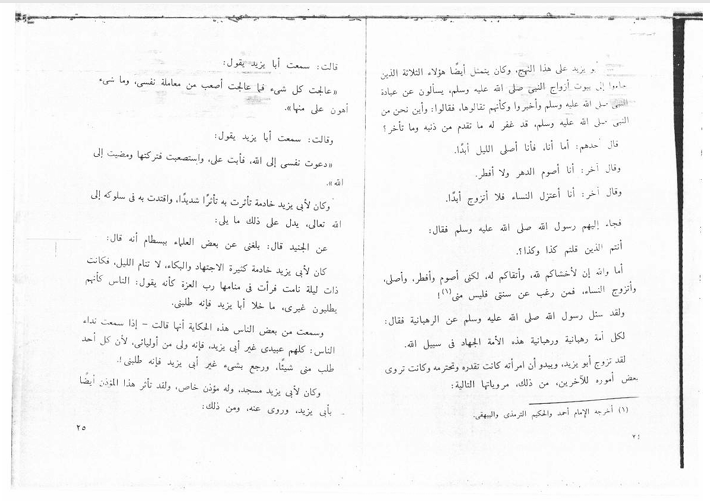 أبو يزيد على هذا النهج، وكان يتمثل أيضًا هؤلاء الثلاثة الذين
جاءوا إلى بيوت أزواج النبى صلى الله عليه وسلم، يسألون عن عبادة
النبى صلى الله عليه وسلم وأخبروا وكأنهم تقالوها، فقالوا: وأين نحن من
النبى صلى الله عليه وسلم، قد غفر له ما تقدم من ذنبه وما تأخر؟
قال أحدهم: أما أنا، فأنا أصلى الليل أبدًا.
وقال آخر: أنا أصوم الدهر ولا أفطر.
وقال آخر: أنا أعتزل النساء فلا أتزوج أبدًا.
فجاء إليهم رسول الله صلى الله عليه وسلم فقال:
أنتم الذين قلتم كذا وكذا؟.
أما والله إن لأخشاكم لله، وأتقاكم له، لكنى أصوم وأفطر، وأصلى،
وأتزوج النساء، فمن رغب عن سنتى فليس منى(١)!
ولقد سئل رسول الله صلى الله عليه وسلم عن الرهبانية فقال:
لكل أمة رهبانية ورهبانية هذه الأمة الجهاد فى سبيل الله.
لقد تزوج أبو يزيد، ويبدو أن امرأته كانت تقدره وتحترمه وكانت تروى
بعض أموره للآخرين، من ذلك، مروياتها التالية:
(١) أخرجه الإمام أحمد والحكيم الترمذى والبيهقى.
٢٤
قالت: سمعت أبا يزيد يقول:
«عالجت كل شىء فما عالجت أصعب من معاملة نفسى، وما شىء
أهون على منها».
وقالت: سمعت أبا يزيد يقول:
«دعوت نفسى إلى الله، فأبت على، واستصعبت فتركتها ومضيت إلى
الله».
وكان لأبى يزيد خادمة تأثرت به تأثرًا شديدًا، واقتدت به فى سلوكه إلى
الله تعالى، يدل على ذلك ما يلى:
عن الجنيد قال: بلغنى عن بعض العلماء ببسطام أنه قال:
كان لأبى يزيد خادمة كثيرة الاجتهاد والبكاء، لا تنام الليل، فكانت
ذات ليلة نامت فرأت فى منامها رب العزة كأنه يقول: الناس كأنهم
يطلبون غيرى، ما خلا أبا يزيد فإنه طلبنى.
وسمعت من بعض الناس هذه الحكاية أنها قالت – إذا سمعت نداء
الناس: كلهم عبيدى غير أبى يزيد، فإنه ولى من أوليائى، لأن كل أحد
طلب منى شيئًا، ورجع بشىء غير أبى يزيد فإنه طلبنى!.
وكان لأبى يزيد مسجد، وله مؤذن خاص، ولقد تأثر هذا المؤذن أيضًا
بأبى يزيد، وروى عنه، ومن ذلك:
٢٥